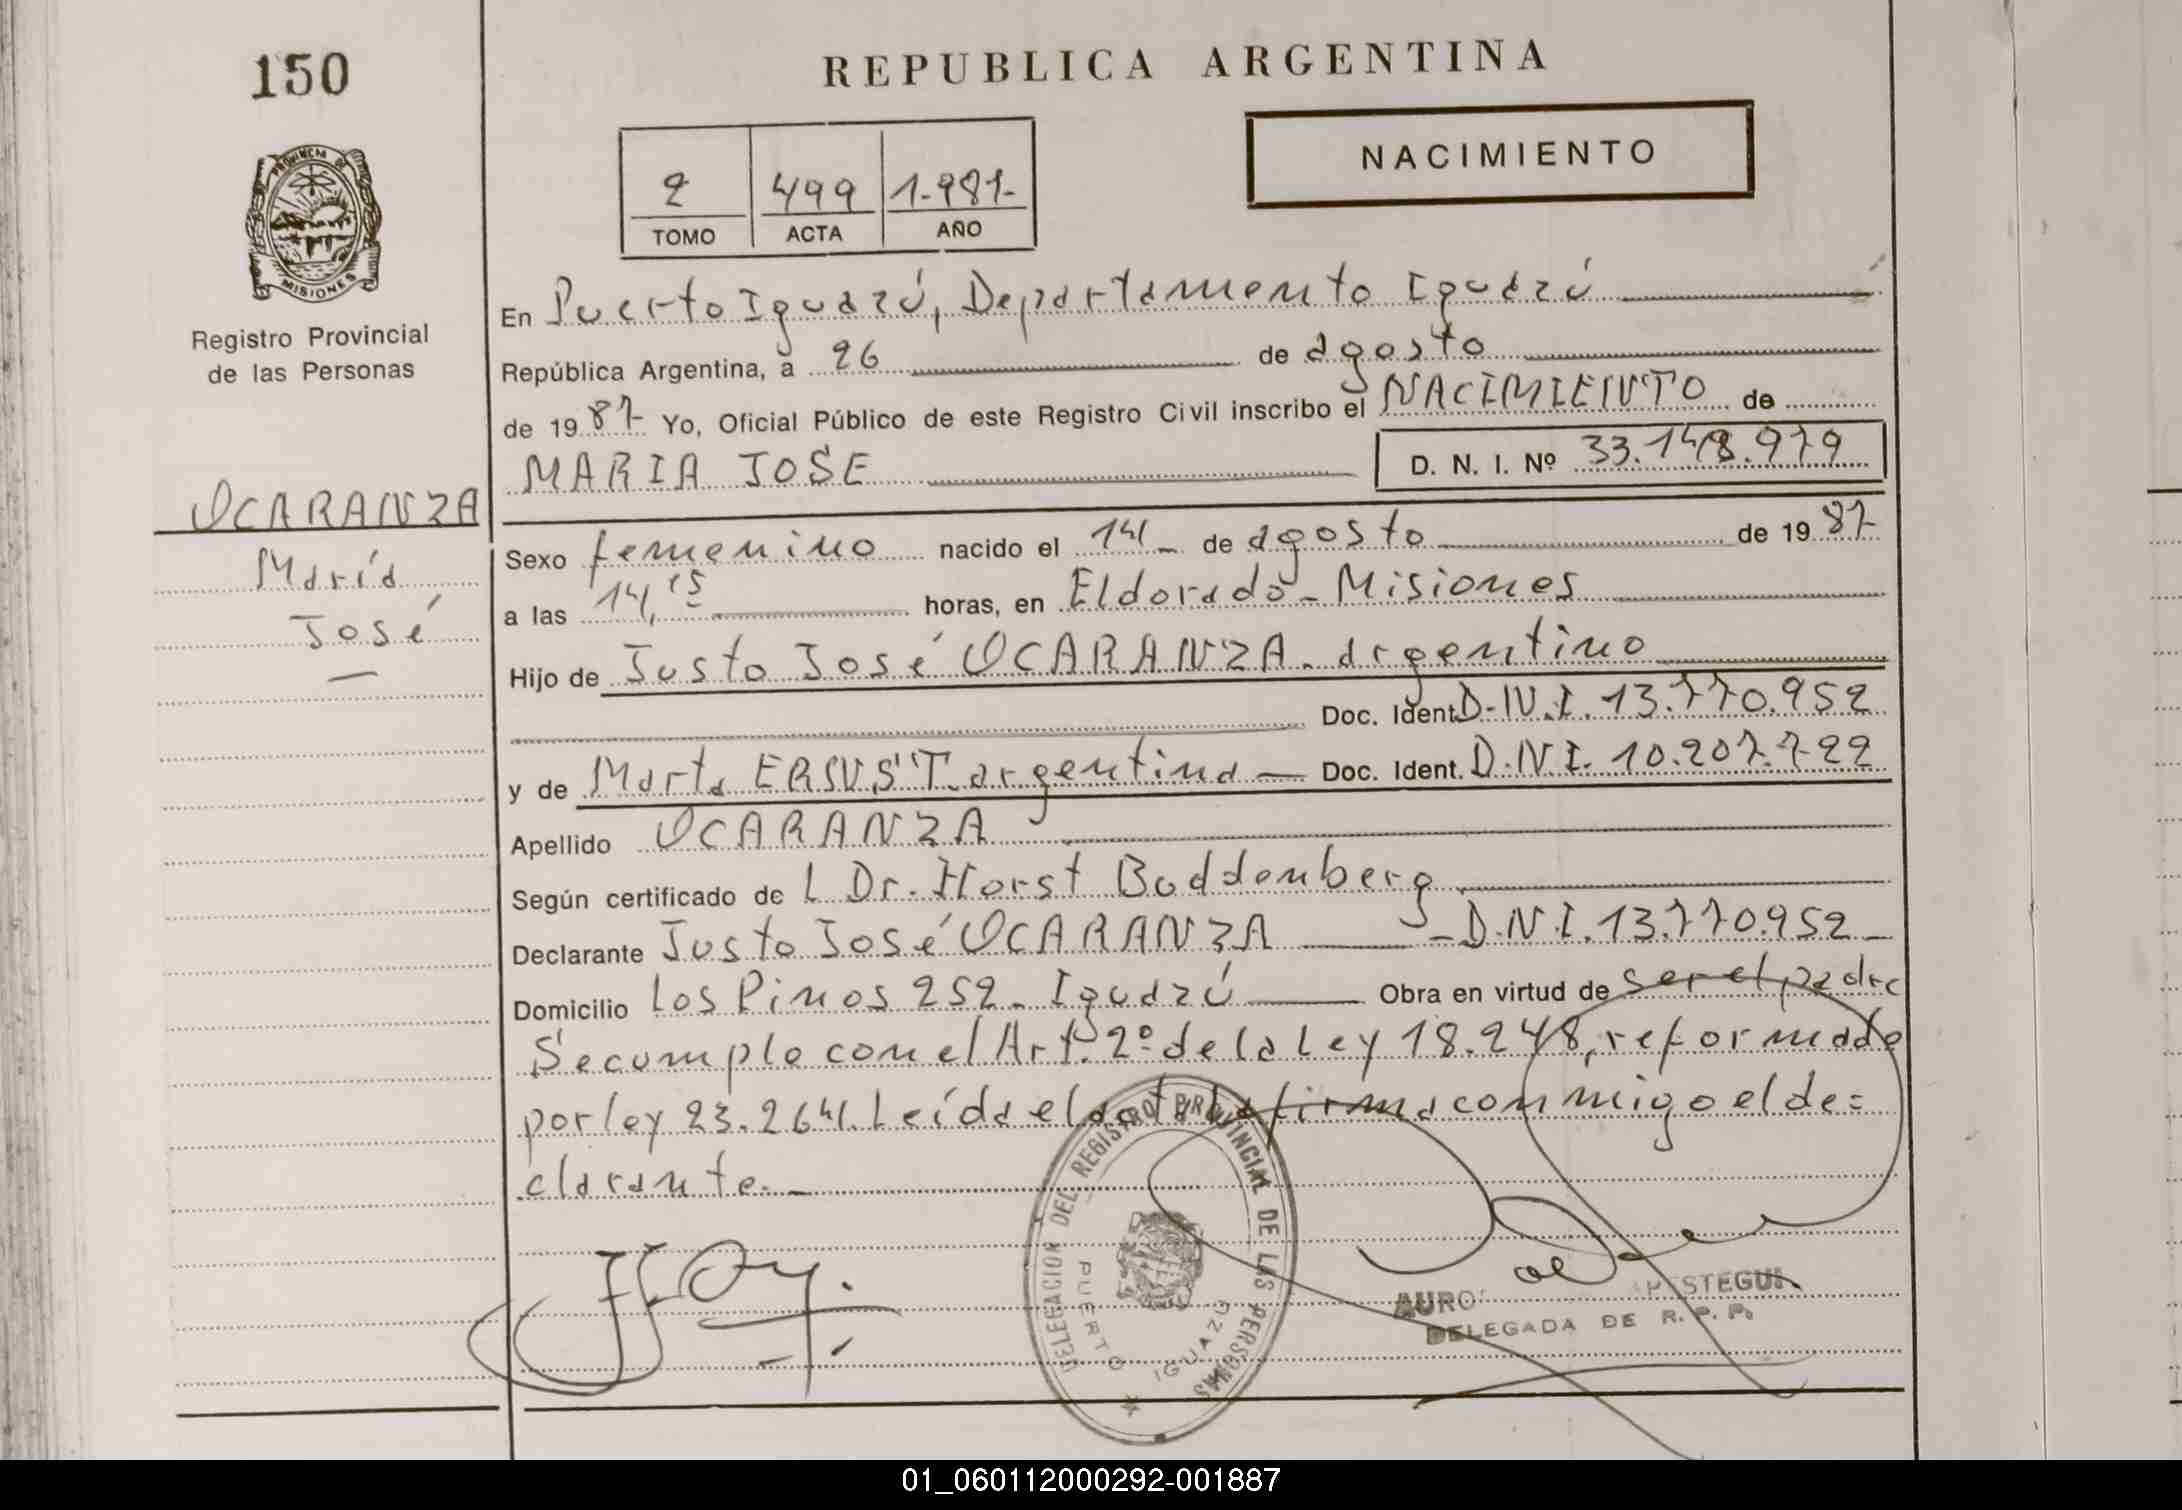 150
REPUBLICA ARGENTINA
NACIMIENTO
2 499 1.987-
TOMO ACTA AÑO
PROVINCIA DE
MISIONES
Registro Provincial
de las Personas
En Puerto Iguazú, Departamento Iguazú
República Argentina, a 26 de agosto
de 1987 Yo, Oficial Público de este Registro Civil inscribo el NACIMIENTO de
MARIA JOSE D. N. I. Nº 33.148.979
OCARANZA
María
José
Sexo femenino nacido el 14 de agosto de 1987
a las 14,15 horas, en Eldorado - Misiones
Hijo de Justo José OCARANZA. argentino
Doc. Ident. D.N.I. 13.770.952
y de Marta argentina Doc. Ident. D.N.I. 10.207.722
Apellido OCARANZA
Según certificado de L Dr. Horst Boddenberg
Declarante Justo José OCARANZA - D.N.I. 13.770.952
Domicilio Los Pinos 252 - Iguazú Obra en virtud de ser el padre
Se cumple con el Art. 2º de la Ley 18.248, reformada
por ley 23.264. Leída el acta la firma conmigo el de=
clarante.
DELEGACION DEL REGISTRO PROVINCIAL DE LAS PERSONAS
PUERTO IGUAZU
DELEGADA DE R. P. P.
01_060112000292-001887